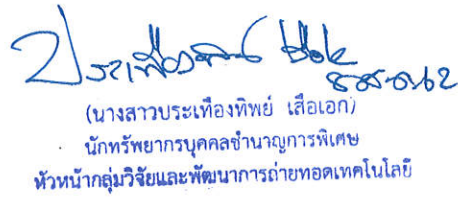 (นางสาวประเทืองทิพย์ เสือเอก)
นักทรัพยากรบุคคลชำนาญการพิเศษ
หัวหน้ากลุ่มวิจัยและพัฒนาการถ่ายทอดเทคโนโลยี